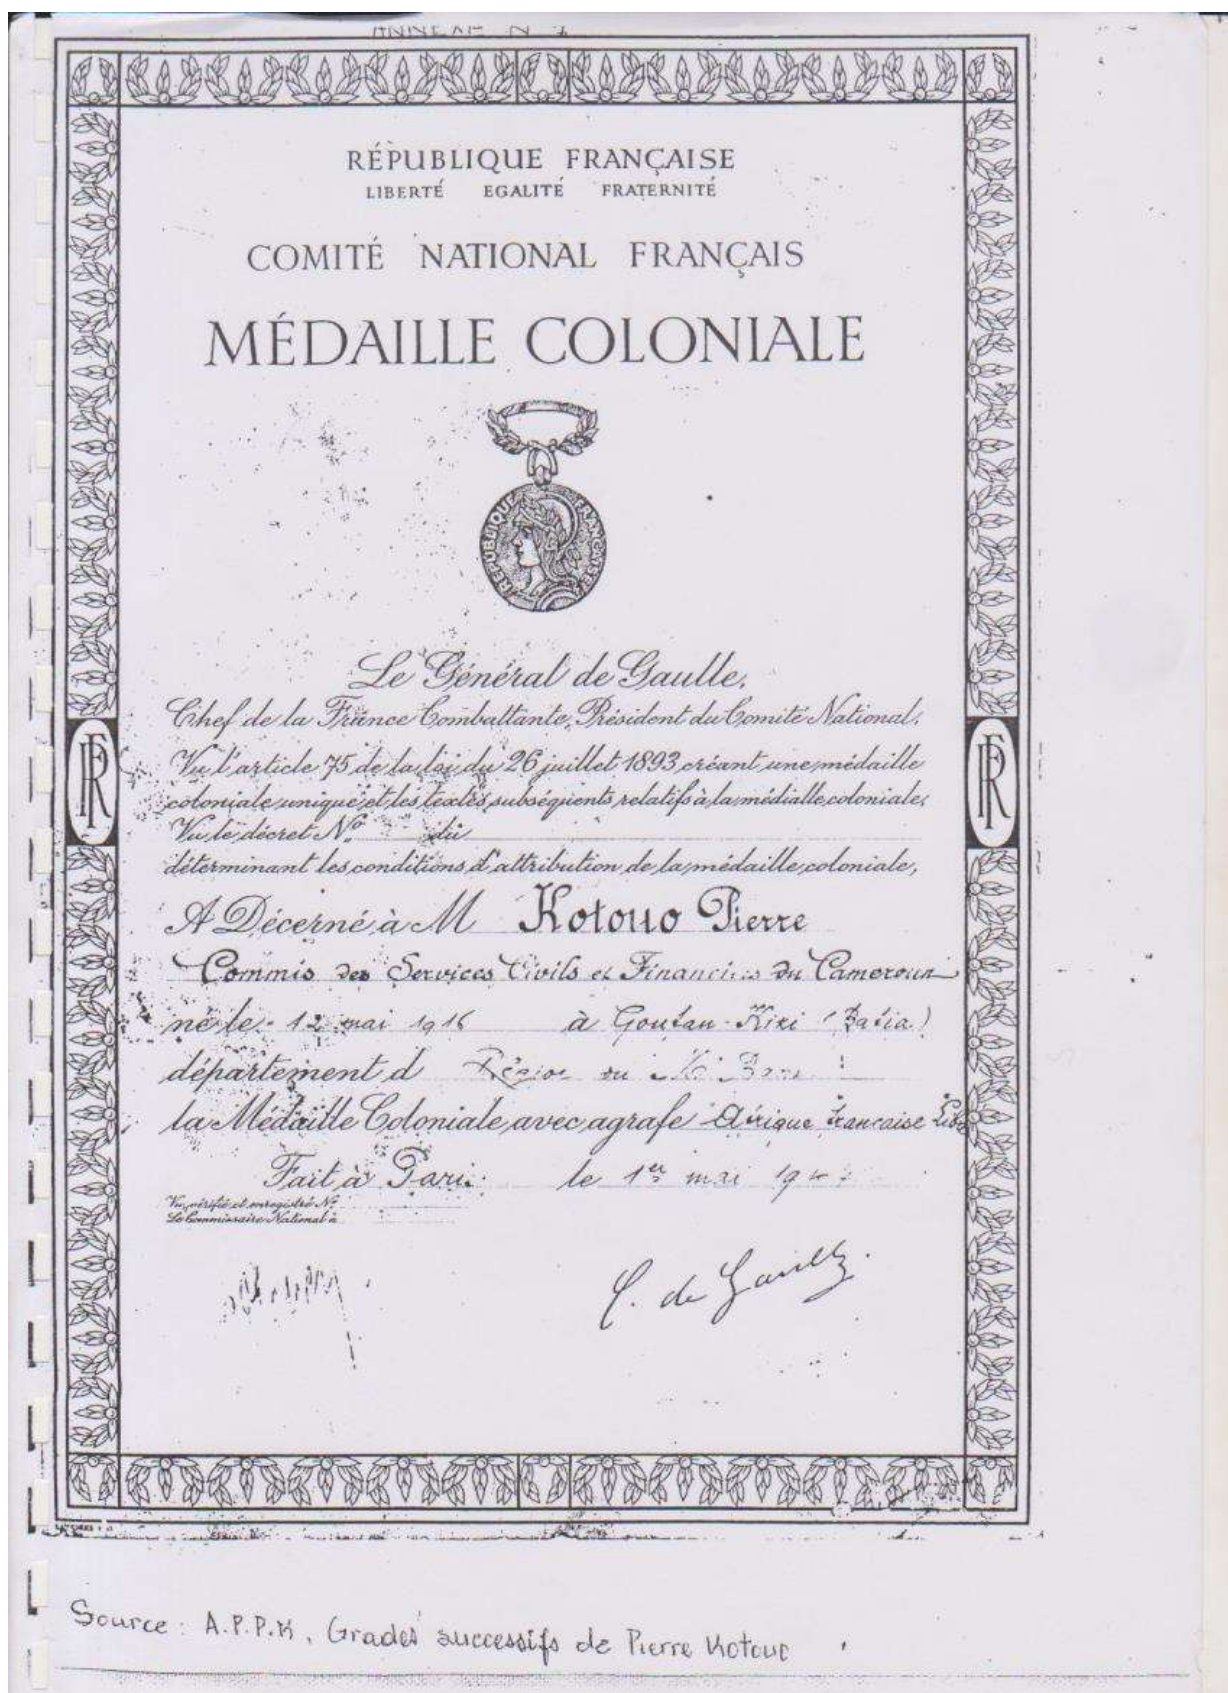 ANNEXE N
RÉPUBLIQUE FRANÇAISE
LIBERTÉ EGALITÉ FRATERNITÉ
COMITÉ NATIONAL FRANÇAIS
MÉDAILLE COLONIALE
REPUBLIQUE FRANÇAISE
Le Général de Gaulle,
Chef de la France Combattante, Président du Comité National,
Vu l'article 75 de la loi du 26 juillet 1893 créant une médaille
coloniale unique et les textes subséquents relatifs à la médialle coloniale,
RF
RF
Vu le décret N° du
déterminant les conditions d'attribution de la médaille coloniale,
A Décerné à M Kotouo Pierre
Commis des Services Civils et Financiers du Cameroun
né le 12 mai 1916 à Goufan-Kiki (Bafia)
département d Région du
la Médaille Coloniale avec agrafe Afrique Francaise Lib
Fait à Paris le 1er mai 194
Vu, vérifié et enregistré N°
Le Commissaire National à
C. de Gaulle
Source : A.P.P.K, Grades successifs de Pierre Kotouo